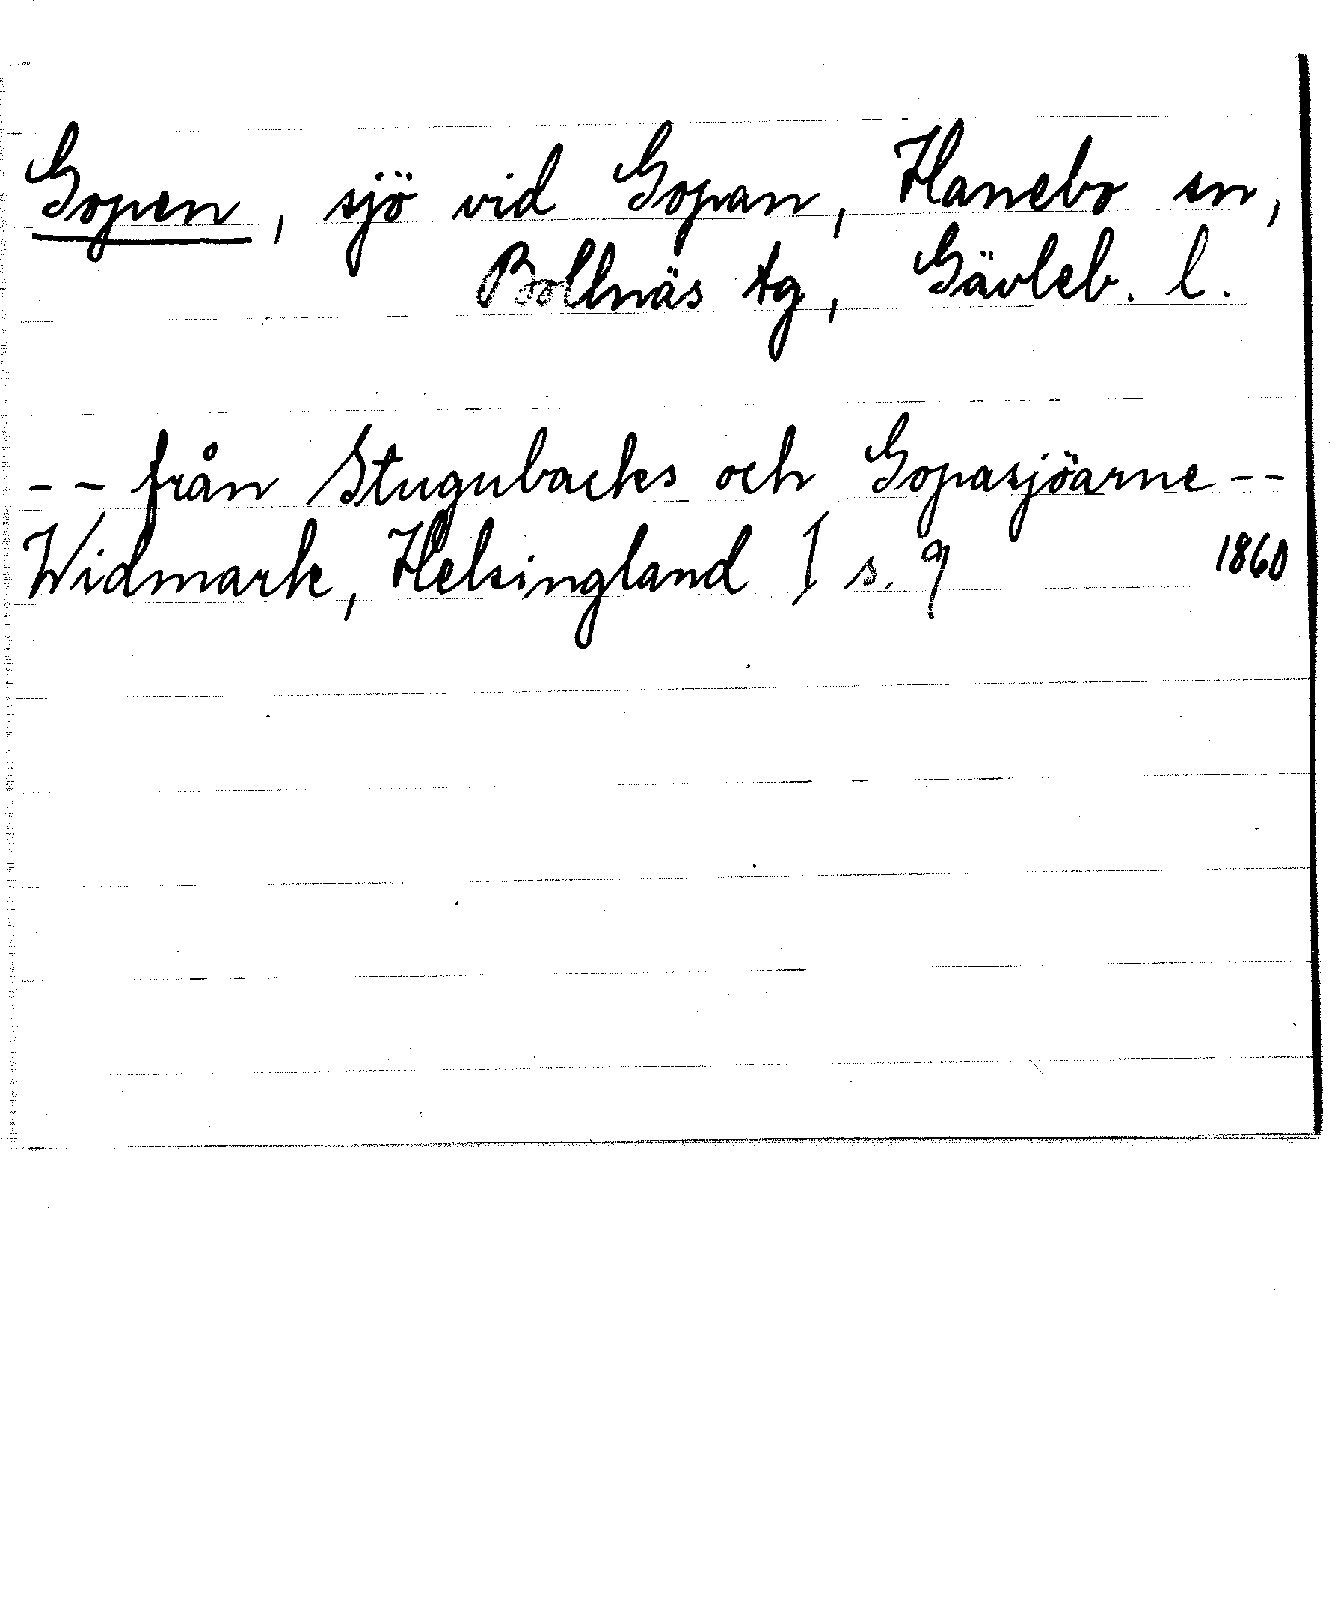 Gopen, sjö vid Gopan, Hanebo sn,
Bollnäs tg, Gävleb. l.
-- från Stugubacks och Gopasjöarne --
Widmark, Helsingland I s. 9 1860